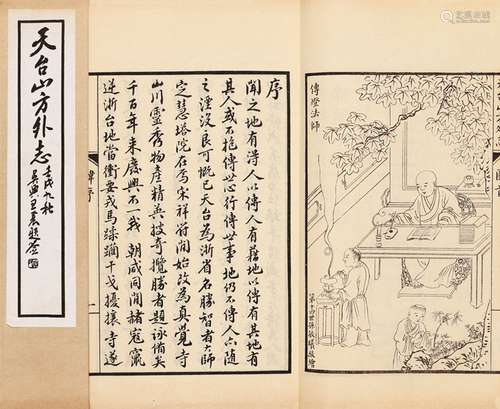 天台山方外志
壬戌九秋
吳興王震題签
序
聞之地有得人以傳人有藉地以傳有其地有
其人或不抱傳世心行傳世事地仍不傳人亦随
之湮沒良可慨已天台為浙省名勝智者大師
定慧塔院在焉宋祥符間始改為真覺寺
山川靈秀物產精英披奇攬勝者題詠備矣
千百年來廢興不一我朝咸同間赭寇竄
逆浙台地當衝要戎馬蹂躪干戈擾攘寺遂
傳燈法師